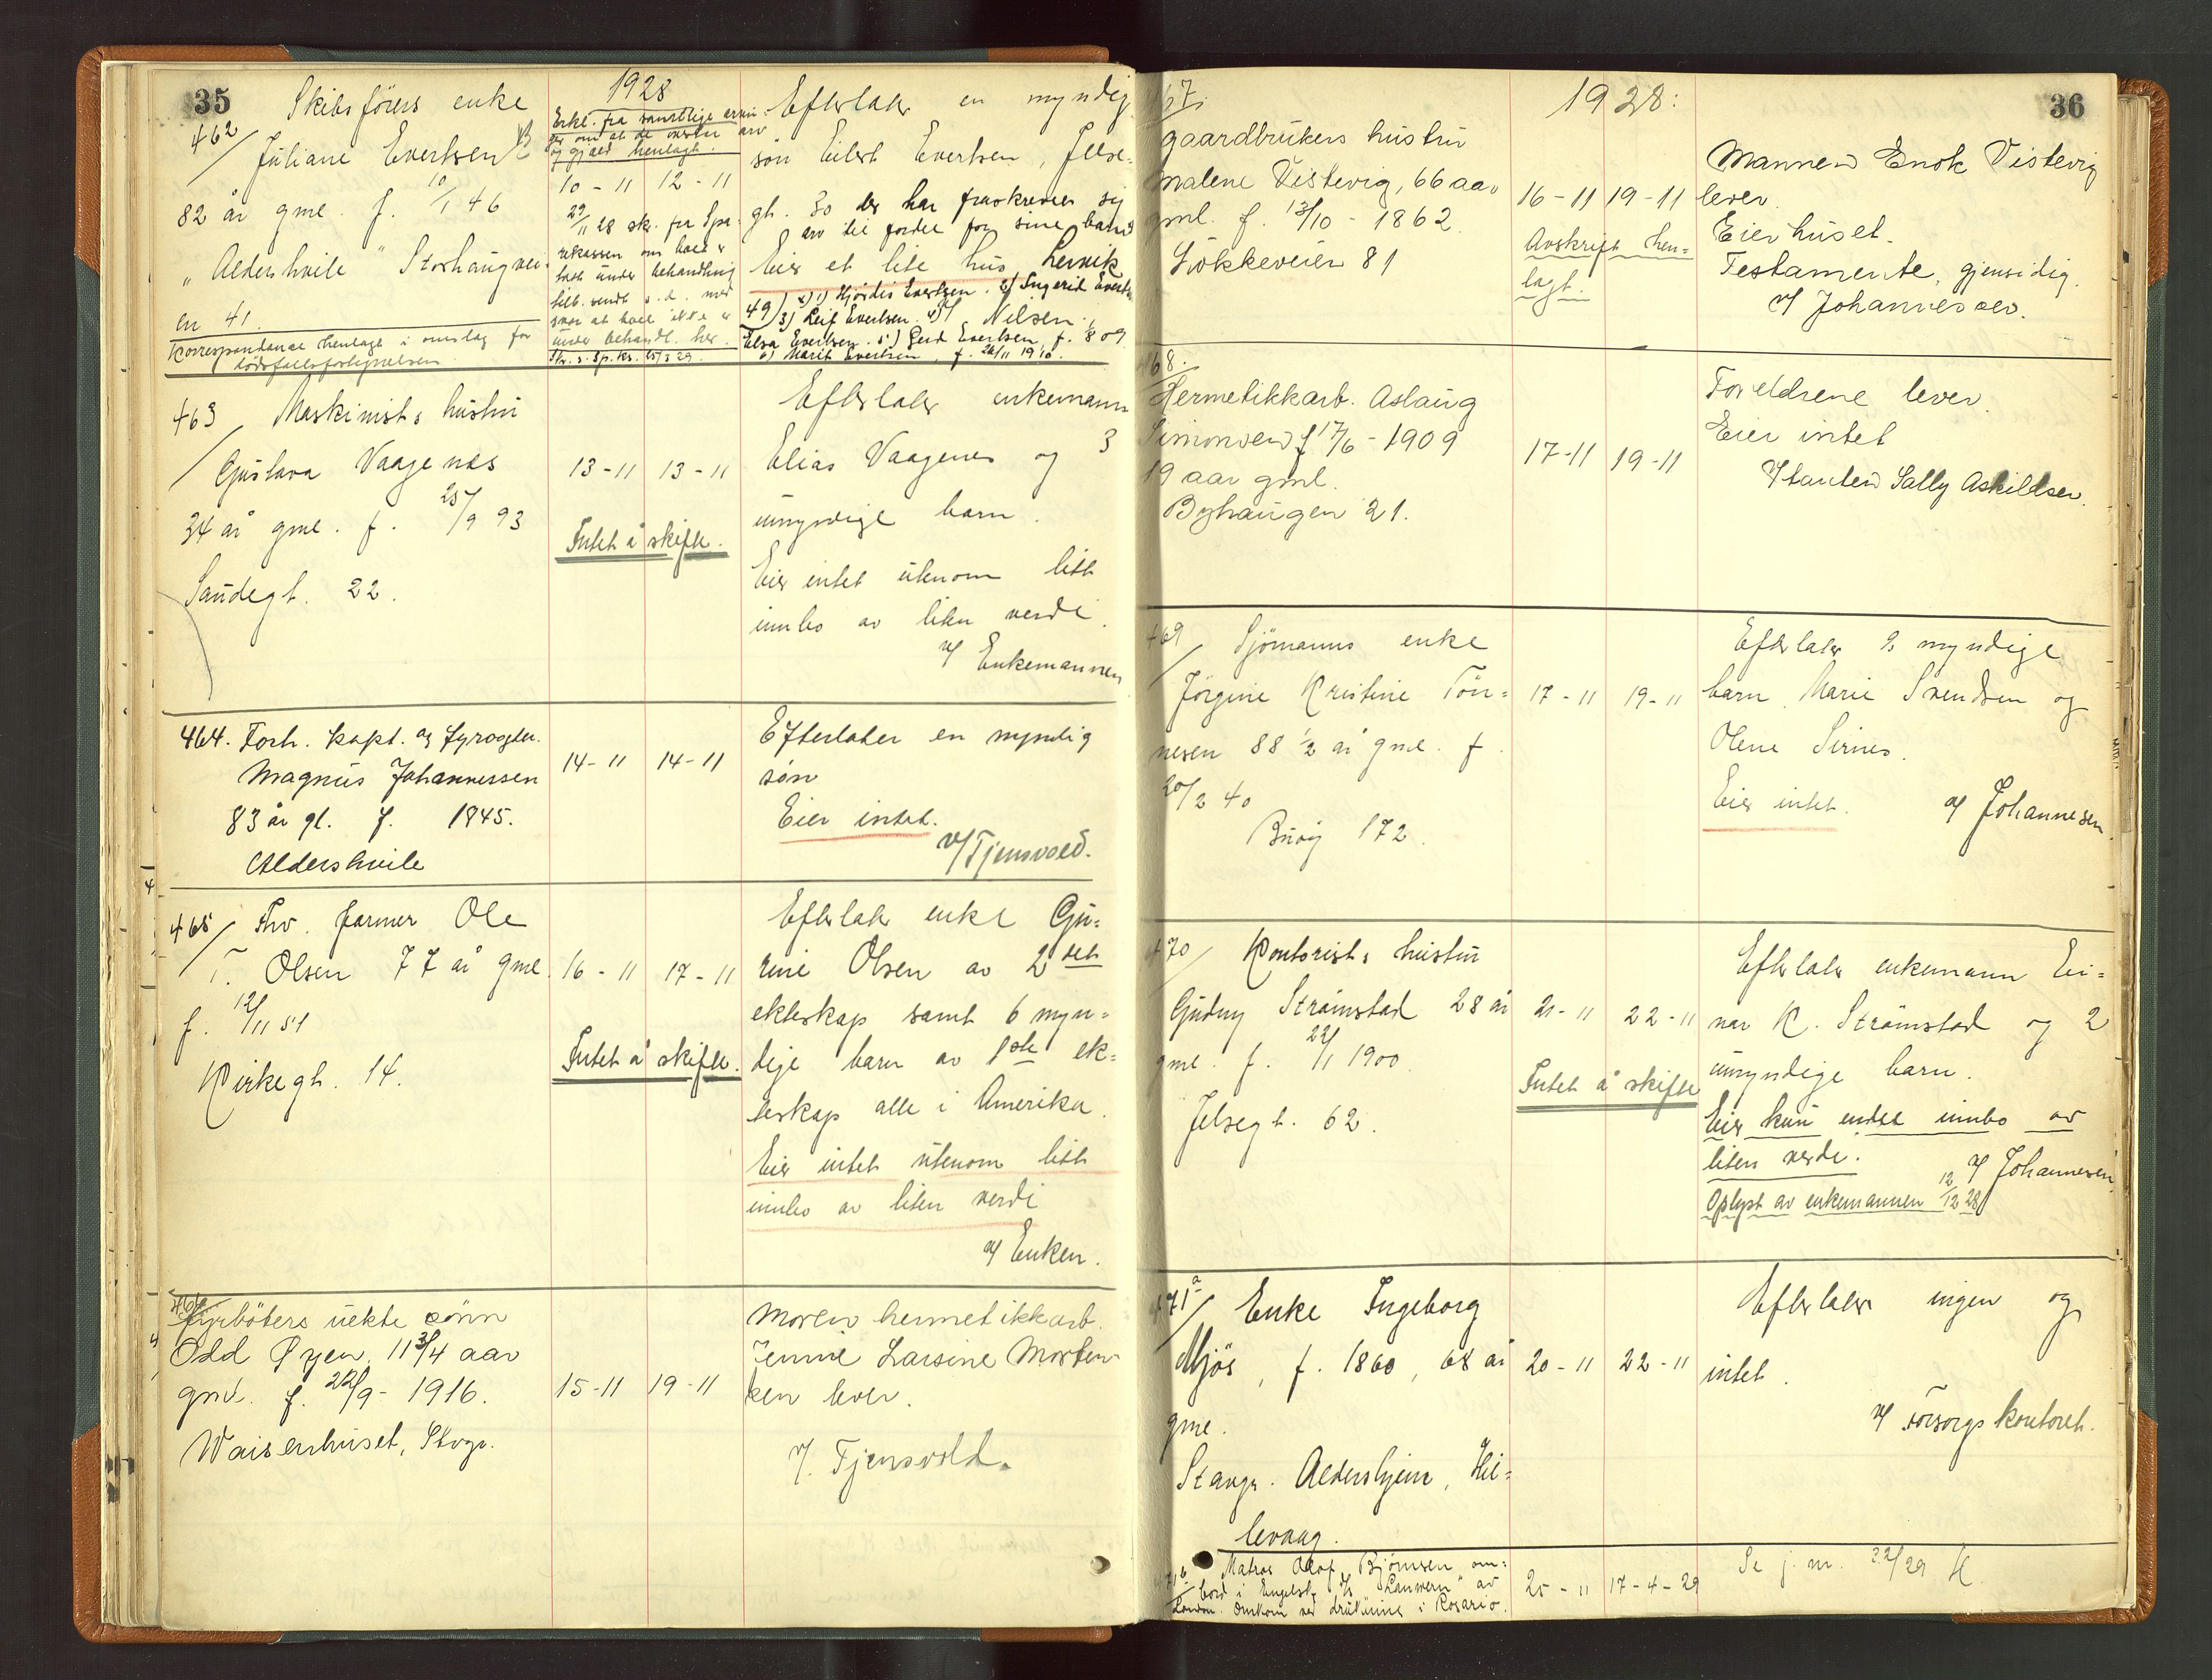 35
1928
Skibsförers enke
462/ Juliane Evertsen
82 år gml. f. 10/1 46
"Aldershvile" Storhaugvei-
en 41.
Korrespondanse henlagt i omslag for
dödsfallsfortegnelsen
Erkl. fra samtlige arvin-
ger om at de overtar arv
og gjæld henlagt.
10-11 12-11
29/11 28 skr. fra Spa-
rekassen om boet er
tatt under behandling
tilb. sendt s.d. med
svar at boet ikke er
under behandl. her.
Skr. s. Sp. ks. 25/3 29.
Efterlater en myndig
sön Eilert Evertsen, Jelse-
gt. 30 der har fraskrevet sig
arv til fordel for sine barn
Eier et lite hus Lervik
49) x) 1) Hjördis Evertsen. 2) Ingerid Everts
3) Leif Evertsen. 4) Nilsen
Elsa Evertsen. 5) Gerd Evertsen, f. 1/8 09
6) Marit Evertsen, f. 26/11 1910.
463/ Maskinists hustru
Gustava Vaagenes
34 år gml. f. 25/9 93
Saudegt. 22.
13-11 13-11
Intet å skifte.
Efterlater enkemann
Elias Vaagenes og 3
umyndige barn.
Eier intet utenom litt
innbo av liten verdi.
v/ Enkemannen
464. Forh. kapt. og fyrvogter.
Magnus Johannessen
83 år gl. f. 1845.
Aldershvile
14-11 14-11
Efterlater en myndig
sön
Eier intet.
v/ Tjensvold.
465/ Fhv. farmer Ole
T. Olsen 77 år gml.
f. 12/11 51
Kirkegt. 14.
16-11 17-11
Intet å skifte.
Efterlater enke Gu-
rine Olsen av 2det
ekteskap samt 6 myn-
dige barn av 1ste ek-
teskap alle i Amerika.
Eier intet utenom litt
innbo av liten verdi
v/ Enken.
466/
Fyrböters uekte sönn
Odd Øyen, 11 3/4 aar
gml. f. 22/9- 1916.
Waisenhuset, Stvgr.
15-11 19-11
Moren hermetikkarb.
Jennie Larsine Morten-
sen lever.
v/. Tjensvold.
36
1928:
67.
gaardbrukers hustru
Malene Vistevig, 66 aar
gml. f. 13/10 - 1862.
Lökkeveien 81
16-11 19-11
Avskrift hen-
lagt.
Mannen Enok Vistevig
lever.
Eier huset.
Testamente, gjensidig.
v/ Johannessen.
68.
Hermetikkarb. Aslaug
Simonsen f 17/6 - 1909
19 aar gml.
Byhaugen 21.
17-11 19-11
Foreldrene lever.
Eier intet
v/ tanten Sally Askildsen.
469/ Sjömanns enke
Jörgine Kristine Tön-
nesen 88 1/2 år gml. f.
20/2 40
Buöy 172.
17-11 19-11
Efterlater 2 myndige
barn Marie Svendsen og
Olene Sirnes.
Eier intet.
v/ Johannesen.
470/ Kontorists hustru
Gudny Strömstad 28 år
gml. f. 22/11 1900.
Jelsegt. 62.
21-11 22-11
Intet å skifte
Efterlater enkemann Ei-
nar K. Strömstad og 2
umyndige barn.
Eier kun endel innbo av
liten verdi.
v/ Johannesen
Oplyst av enkemannen 12/12 28
471a/ Enke Ingeborg
Mjös, f. 1860, 68 år
gml.
Stavgr. Aldershjem, Hil-
levaag.
20-11 22-11
Efterlater ingen og
intet.
v/ Forsorgskontoret.
471b Matros Olaf Björnsen om-
bord i Engelsk D/S "Lanwern" av
London. Omkom ved drukning i Rosario.
25-11 17-4-29
Se j.nr. 32/29 H